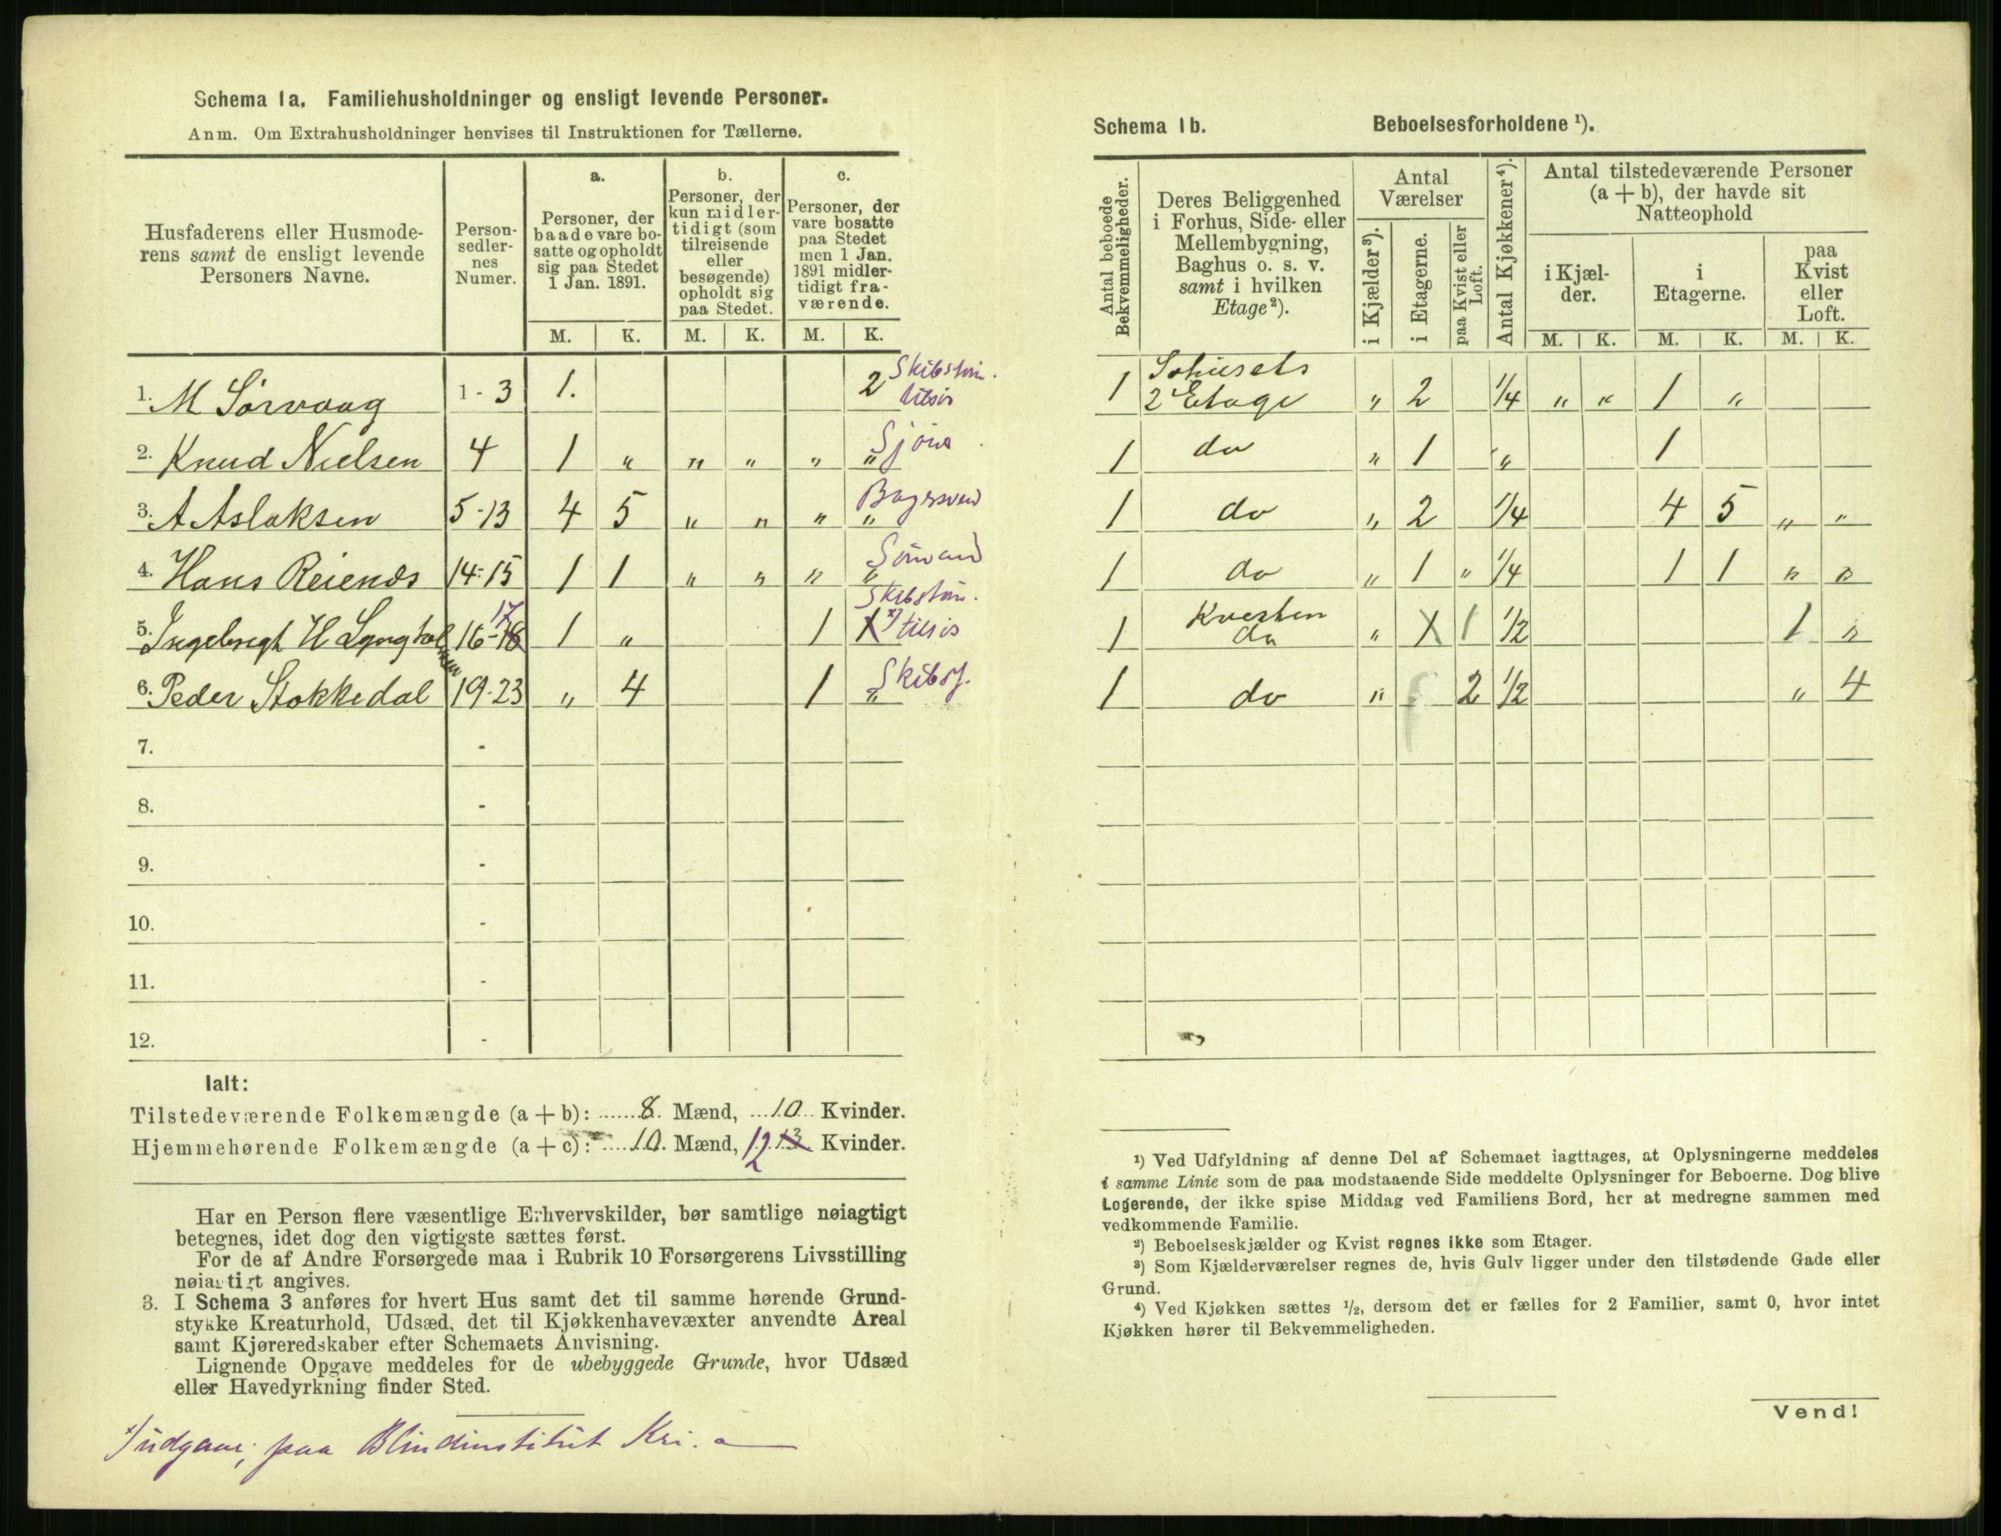 Schema 1a. Familiehusholdninger og ensligt levende Personer.
Anm. Om Extrahusholdninger henvises til Instruktionen for Tællerne.
Husfaderens eller Husmoderens samt de ensligt levende Personers Navne.
Person-sedlernes Numer.
a. Personer, der baade vare bosatte og opholdt sig paa Stedet 1 Jan. 1891.
b. Personer, der kun midlertidigt (som tilreisende eller besøgende) opholdt sig paa Stedet.
c. Personer, der vare bosatte paa Stedet men 1 Jan. 1891 midlertidigt fraværende.
M. K. M. K. M. K.
1. M Sørvaag 1-3 1. 2 Skibstøm. tilsis
2. Knud Nielsen 4 1 " " " " " Sjöm
3. A Aslaksen 5-13 4 5 " " " " Bagersvend
4. Hans Reiends 14-15 1 1 " " " "
5. Ingebrigt H Lyngholmen 16-17 18 1 " 1 1 x) Skibstøm. tilsis
6. Peder Stokkedal 19-23 " 4 1 " Skibsf.
7. -
8. -
9. -
10. -
11. -
12. -
Ialt:
Tilstedeværende Folkemængde (a + b): 8 Mænd, 10 Kvinder.
Hjemmehørende Folkemængde (a + c): 10 Mænd, 12 13 Kvinder.
Har en Person flere væsentlige Erhvervskilder, bør samtlige nøiagtigt
betegnes, idet dog den vigtigste sættes først.
For de af Andre Forsørgede maa i Rubrik 10 Forsørgerens Livsstilling
nøiagtigt angives.
3. I Schema 3 anføres for hvert Hus samt det til samme hørende Grund-
stykke Kreaturhold, Udsæd, det til Kjøkkenhavevæxter anvendte Areal
samt Kjøreredskaber efter Schemaets Anvisning.
Lignende Opgave meddeles for de ubebyggede Grunde, hvor Udsæd
eller Havedyrkning finder Sted.
x) udgaar; paa Blindinstitut Kri.a
Schema 1b. Beboelsesforholdene ¹).
Antal beboede Bekvemmeligheder.
Deres Beliggenhed i Forhus, Side- eller Mellembygning, Baghus o. s. v. samt i hvilken Etage ²).
Antal Værelser
i Kjælder ³).
i Etagerne.
paa Kvist eller Loft.
Antal Kjøkkener ⁴).
Antal tilstedeværende Personer (a + b), der havde sit Natteophold
i Kjælder.
i Etagerne.
paa Kvist eller Loft.
M. K. M. K. M. K.
1 2 Etage " 2 1/4 " " 1 "
1 do " 1 " 1
1 do " 2 1/4 4 5 " "
1 do " 1 " 1/4 1 1 " "
1 Kvesten do " 1 1 1/2 1 "
1 do " 2 1/2 " 4
¹) Ved Udfyldning af denne Del af Schemaet iagttages, at Oplysningerne meddeles
i samme Linie som de paa modstaaende Side meddelte Oplysninger for Beboerne. Dog blive
Logerende, der ikke spise Middag ved Familiens Bord, her at medregne sammen med
vedkommende Familie.
²) Beboelseskjælder og Kvist regnes ikke som Etager.
³) Som Kjælderværelser regnes de, hvis Gulv ligger under den tilstødende Gade eller
Grund.
⁴) Ved Kjøkken sættes 1/2, dersom det er fælles for 2 Familier, samt 0, hvor intet
Kjøkken hører til Bekvemmeligheden.
Vend!